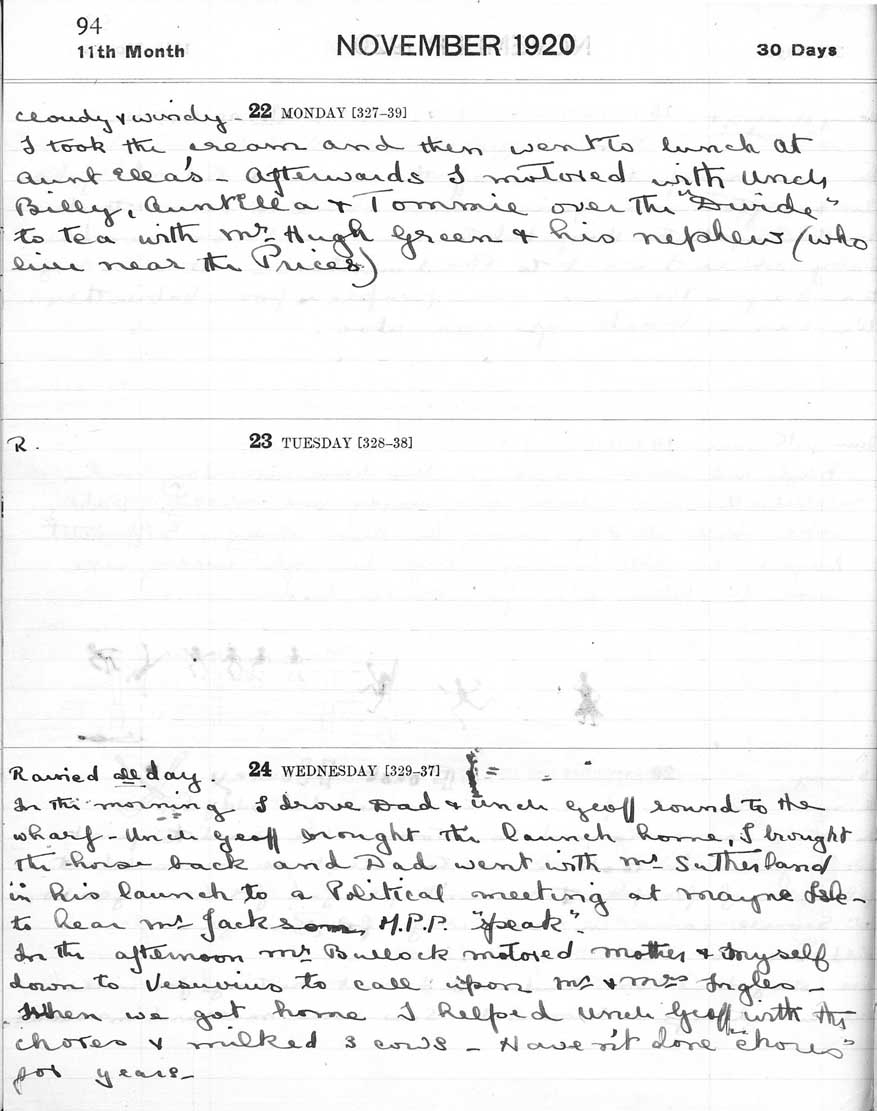 94
11th Month NOVEMBER 1920 30 Days
Cloudy & windy - 22 MONDAY [327-39]
I took the cream and then went to lunch at
Aunt Ella's - Afterwards I motored with Uncle
Billy, Aunt Ella & Tommie over the "Divide"
to tea with Mr Hugh Green & his nephew (who
live near the Prices)
R. 23 TUESDAY [328-38]
Rained all day. 24 WEDNESDAY [329-37]
In the morning I drove Dad & Uncle Geoff round to the
wharf - Uncle Geoff brought the launch home, I brought
the horse back and Dad went with Mr Sutherland
in his launch to a Political meeting at Mayne Isle -
to hear Mr Jackson, M.P.P. "speak".
In the afternoon Mr Bullock motored Mother & myself
down to Vesuvius to call upon Mr & Mrs Ingles -
When we got home I helped Uncle Geoff with the
chores & milked 3 cows - Have n't done "chores"
for years -